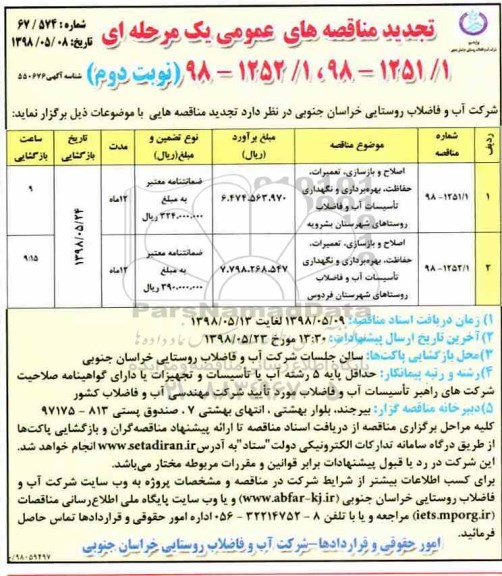 شماره : ۶۷/۵۷۴
تاریخ: ۱۳۹۸/۰۵/۰۸
تجدید مناقصه های عمومی یک مرحله ای
۹۸ – ۱۲۵۱/۱ ، ۹۸ – ۱۲۵۲/۱ (نوبت دوم)
شناسه آگهی ۵۵۰۶۷۶
شرکت آب و فاضلاب روستایی خراسان جنوبی در نظر دارد تجدید مناقصه هایی با موضوعات ذیل برگزار نماید:
ردیف شماره مناقصه موضوع مناقصه مبلغ برآورد (ریال) نوع تضمین و مبلغ(ریال) مدت تاریخ بازگشایی ساعت بازگشایی
۱ ۹۸ -۱۲۵۱/۱ اصلاح و بازسازی، تعمیرات، حفاظت، بهره‌برداری و نگهداری تأسیسات آب و فاضلاب روستاهای شهرستان بشرویه ۶.۴۷۴.۵۶۳.۹۷۰ ضمانتنامه معتبر به مبلغ ۳۲۴.۰۰۰.۰۰۰ ریال ۱۲ماه ۱۳۹۸/۰۵/۲۴ ۹
۲ ۹۸ -۱۲۵۲/۱ اصلاح و بازسازی، تعمیرات، حفاظت، بهره‌برداری و نگهداری تأسیسات آب و فاضلاب روستاهای شهرستان فردوس ۷.۷۹۸.۲۶۸.۵۴۷ ضمانتنامه معتبر به مبلغ ۳۹۰.۰۰۰.۰۰۰ ریال ۱۲ماه ۹:۱۵
۱) زمان دریافت اسناد مناقصه: ۱۳۹۸/۰۵/۰۹ لغایت ۱۳۹۸/۰۵/۱۳
۲) آخرین تاریخ ارسال پیشنهادات: ۱۳:۳۰ مورخ ۱۳۹۸/۰۵/۲۳
۳) محل بازگشایی پاکت‌ها: سالن جلسات شرکت آب و فاضلاب روستایی خراسان جنوبی
۴) رشته و رتبه پیمانکار: حداقل پایه ۵ رشته آب یا تأسیسات و تجهیزات یا دارای گواهینامه صلاحیت
شرکت های راهبر تأسیسات آب و فاضلاب مورد تأیید شرکت مهندسی آب و فاضلاب کشور
۵) دبیرخانه مناقصه گزار: بیرجند، بلوار بهشتی ، انتهای بهشتی ۷ . صندوق پستی ۸۱۳ – ۹۷۱۷۵
کلیه مراحل برگزاری مناقصه از دریافت اسناد مناقصه تا ارائه پیشنهاد مناقصه‌گران و بازگشایی پاکت‌ها
از طریق درگاه سامانه تدارکات الکترونیکی دولت"ستاد"به آدرس www.setadiran.ir انجام خواهد شد.
این شرکت در رد یا قبول پیشنهادات برابر قوانین و مقررات مربوطه مختار می‌باشد.
برای کسب اطلاعات بیشتر از شرایط شرکت در مناقصه و مشخصات پروژه به وب سایت شرکت آب و
فاضلاب روستایی خراسان جنوبی (www.abfar-kj.ir) و یا وب سایت پایگاه ملی اطلاع‌رسانی مناقصات
(iets.mporg.ir) مراجعه و یا با تلفن ۸ – ۳۲۲۱۴۷۵۲ – ۰۵۶ اداره امور حقوقی و قراردادها تماس حاصل
فرمائید.
امور حقوقی و قراردادها–شرکت آب و فاضلاب روستایی خراسان جنوبی
۹۸۰۵۹۴۹۷/
ParsNamadData